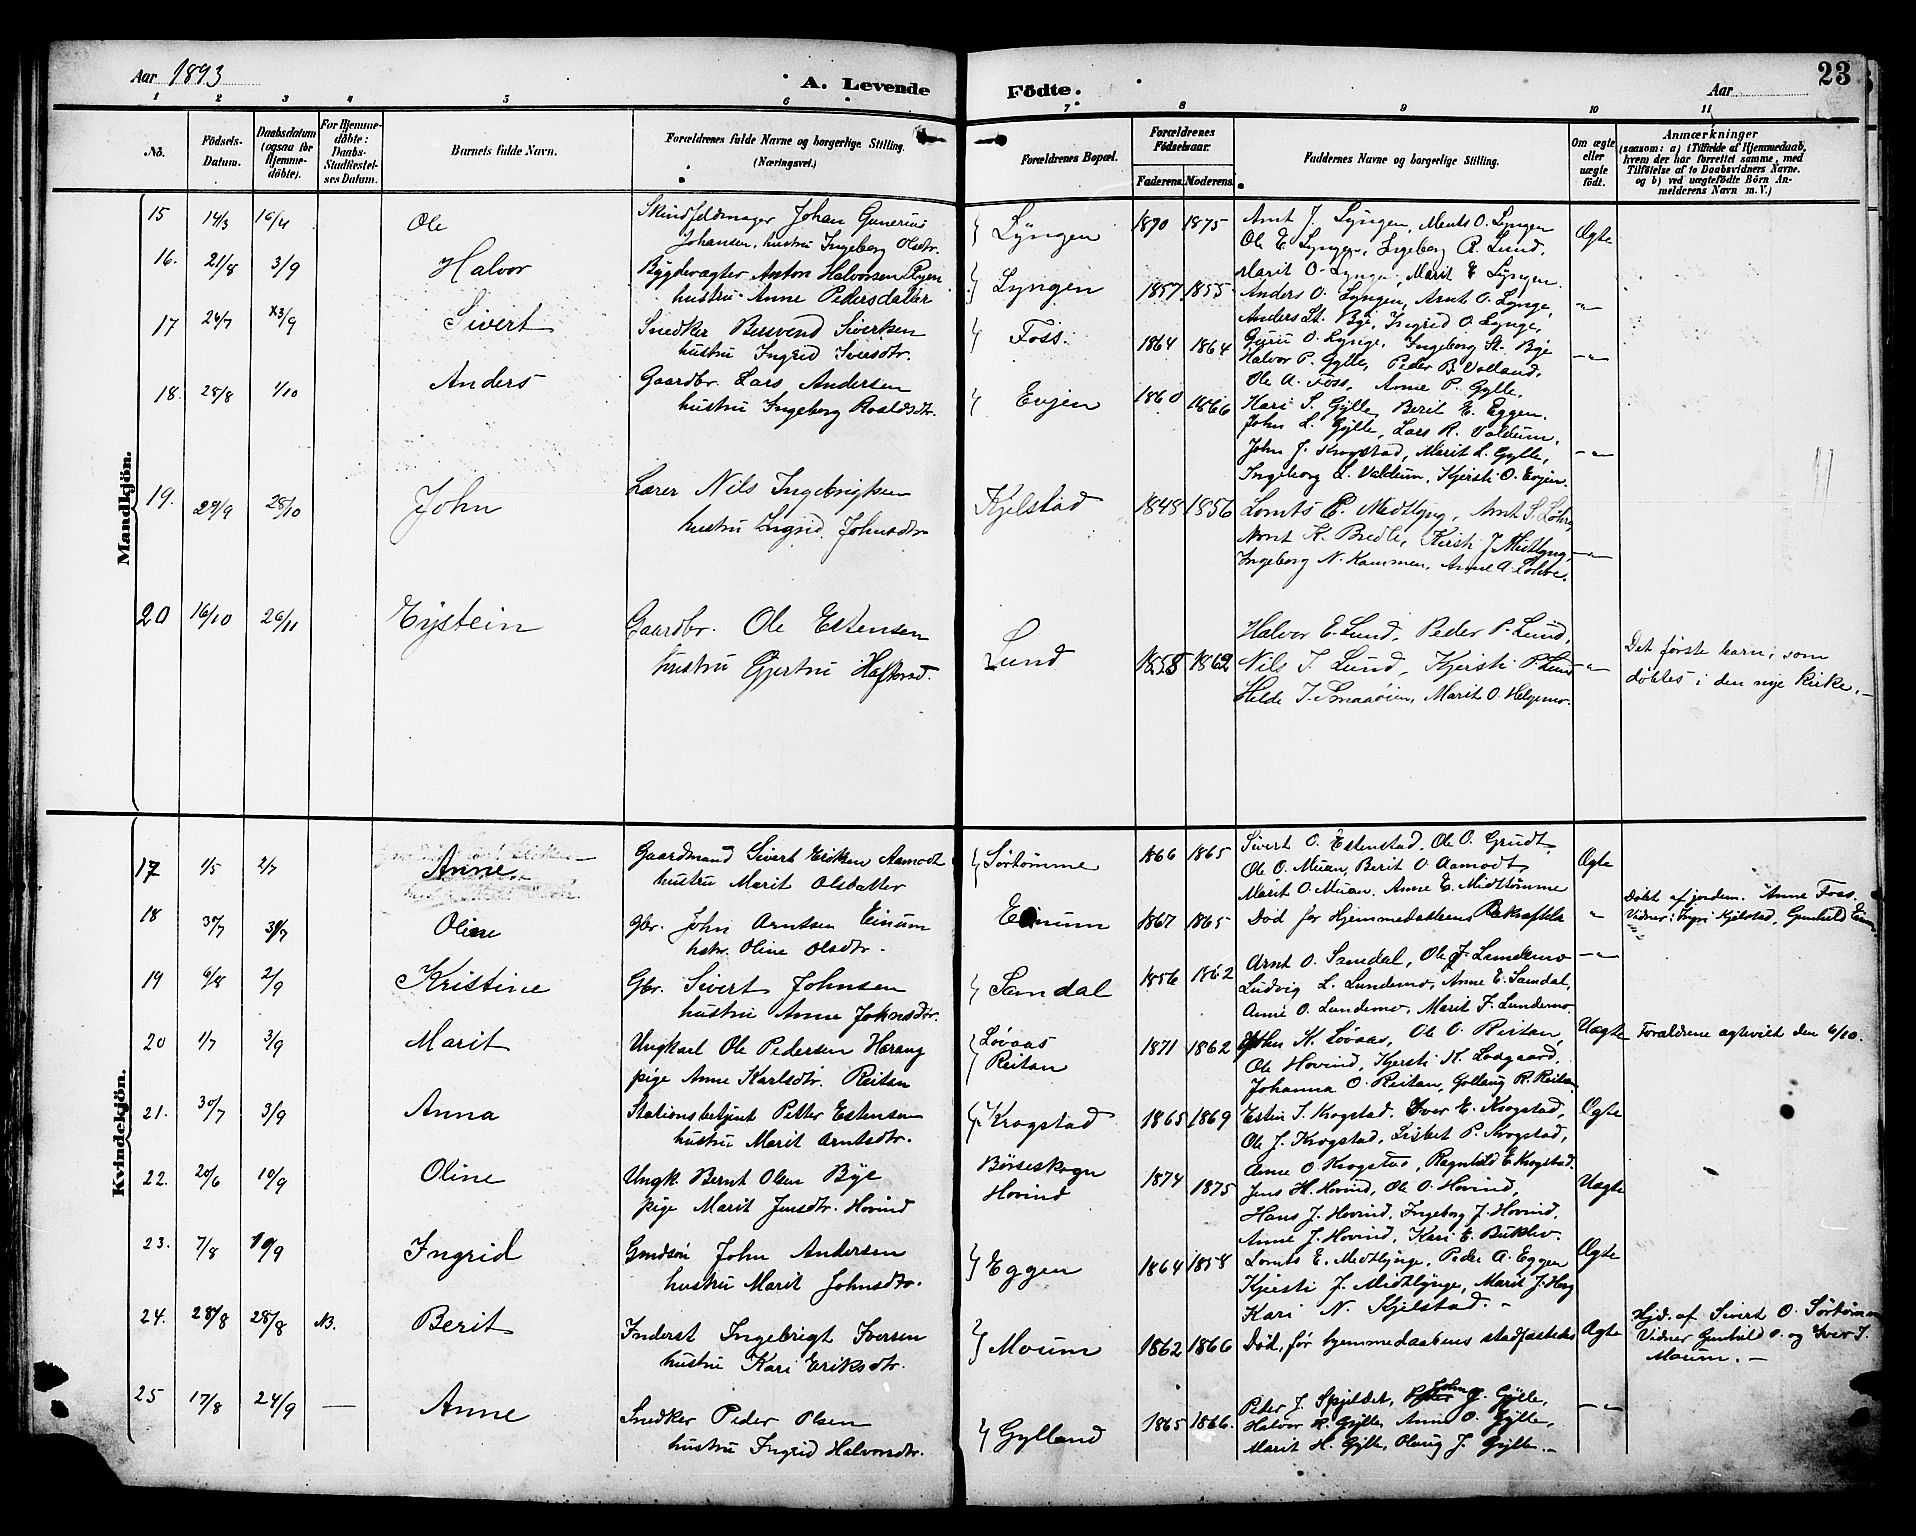 Aar 1893
A. Levende
Födte.
Aar
23
1 2 3 4 5 6 7 8 9 10 11
No.
Födsels-Datum.
Daabsdatum (ogsaa för Hjemmedöbte).
For Hjemmedöbte: Daabs-Stadfæstelses Datum.
Barnets fulde Navn.
Forældrenes fulde Navne og borgerlige Stilling. (Næringsvei.)
Forældrenes Bopæl.
Forældrenes Födselsaar.
Faderens. Moderens.
Faddernes Navne og borgerlige Stilling.
Om ægte eller uægte födt.
Anmærkninger
(saasom: a) i Tilfælde af Hjemmedaab, hvem der har forrettet samme, med Tilföielse af to Daabsvidners Navne. og b) ved uægtefödte Börn Anmelderens Navn m. V.)
Mandkjön.
15 14/3 16/4 Ole
Skindfeldmager Johan Gunerius
Johansen, hustru Ingeborg Olsdtr.
Lyngen 1870 1875
Arnt J. Lyngen, Ments O. Lyngen
Ole E. Lyngen, Ingeborg R. Lund,
Marit O. Lynge, Marit E. Lyngen.
Ægte
16. 21/8 3/9 Halvor
Bygdevægter Anton Halvorsen Ryen
hustru Anne Pedersdatter
Lyngen 1857 1855
Anders O. Lyngen, Arnt O. Lynge,
Anders St. Bye, Ingrid O. Lynge,
Guru O. Lynge, Ingeborg St. Bye
-"-
17 26/7 x3/9 Sivert
Snedker Bersvend Sivertsen
hustru Ingrid Iversdtr.
Foss. 1864 1864
Halvor P. Gylle, Peder B. Volland,
Ole A. Foss, Anne P. Gylle,
Kari S. Gylle, Berit E. Eggen.
-"-
18. 28/8 1/10 Anders
Gaardbr. Lars Andersen
hustru Ingeborg Roaldsdtr.
Evjen 1860 1866
John L. Gylle, Lars R. Valdum,
John J. Krogstad, Marit L. Gylle,
Ingeborg L. Valdum, Kjersti O. Evjen.
-"-
19. 29/9 28/10 John
Lærer Nils Ingebrigtsen
hustru Ingrid Johnsdtr
Kjelstad 1848 1856
Lomts E. Midtlyng, Arnt S. Løhre
Arnt K. Bredli, Kirsti J. Midtlyng,
Ingeborg N. Kammen, Anne A. Løhre.
-"-
20 16/10 26/11 Eystein
Gaardbr. Ole Estensen
hustru Gjertru Haftorsd.
Lund 1858 1862
Halvor E. Lund, Peder P. Lund,
Nils I. Lund, Kjersti P. Lund
Helde I. Smaaøien, Marit O. Helgemo.
-"-
Det første barn, som
døbtes i den nye kirke.-
Kvindekjön.
17 1/5 2/7 Anne
Gaardmand Sivert Eriksen Aamodt
hustru Marit Olsdatter
Sørtømme 1866 1865
Sivert O. Estenstad, Ole O. Grudt,
Ole O. Muan, Berit O Aamodt,
Marit O. Muan, Anne E. Midttømme
Ægte
18 30/7 30/7 Oline
Gbr. John Arntsen Einum
hstr. Oline Olsdtr.
Einum 1867 1865
Død før Hjemmedaabens Bekræftelse
"
Døbt af jordem. Anne Foss.
Vidner: Ingri Kjelstad, Gunhild Einum
19 6/8 2/9 Kristine
Gbr. Sivert Johnsen
hustru Anne Johnsdtr.
Samdal 1856 1862
Arnt O. Samdal, Ole J. Lundemo
Ludvig L. Lundemo, Anne E. Samdal,
Anne O. Lundemo, Marit F. Lundemo.
-"-
20 1/7 3/9 Marit
Ungkarl Ole Pedersen Hørang
pige Anne Karlsdtr. Reitan
Løvaas
Reitan
1871 1862
John K. Løvaas, Ole O. Reitan,
Ole Hovind, Kjersti K. Lodgaard,
Johanna O. Reitan, Gollaug R. Reitan
Uægte
Forældrene ægteviet den 6/10.
21. 30/7 3/9 Anna
Stationsbetjent Petter Estensen
hustru Marit Arntsdtr.
Krogstad 1865 1869
Esten I. Krogstad. Iver E. Krogstad,
Ole J. Krogstad, Lisbet P. Krogstad,
Anne O Krogstad, Ragnhild E. Krogstad.
Ægte
22. 20/6 10/9 Oline
Ungk. Bernt Olsen Bye
pige Marit Jensdtr. Hovind
Børseskogn
Hovind
1874 1875
Jens H. Hovind, Ole O. Hovind,
Hans J. Hovind, Ingeborg J. Hovind,
Anne J. Hovind, Kari E. Buklev.
Uægte
23. 7/8 10/9 Ingrid
Gmdsøn John Andersen
hustru Marit Johnsdtr.
Eggen 1864 1858
Lomts E. Midtlynge, Peder A. Eggen
Kjersti J. Midtlynge, Marit J. Hog
Kari N. Kjelstad.-
Ægte
24. 28/8 28/8 NB. Berit
Inderst Ingebrigt Iversen
hustru Kari Eriksdtr.
Moum 1862 1866
Død, før hjemmedaabens stadfæstelse
Ægte
Hjd. af Sivert O. Sørtømme
Vidner Gunhild O. og Iver I.
Moum.-
25 17/8 24/9 — Anne
Snedker Peder Olsen
hustru Ingrid Halvorsdtr.
Gylland 1865 1866.
Peder J. Spjeldet, John J. Gylle,
Halvor H. Gylle, Anne O. Gylle,
Marit H. Gylle, Olaug J. Gylle.-
-"-